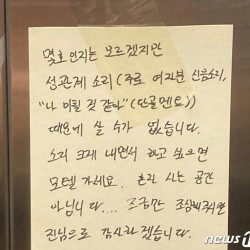 몇호인지는 모르겠지만
성관계 소리 (주로 여자분 신음소리,
"나 미칠 것 같아" (단골멘트))
때문에 살 수가 없습니다.
소리 크게 내면서 하고 싶으면
모텔 가세요. 혼자 사는 공간
아닙니다.... 조금만 조심해주시면
진심으로 감사하겠습니다.
뉴스1